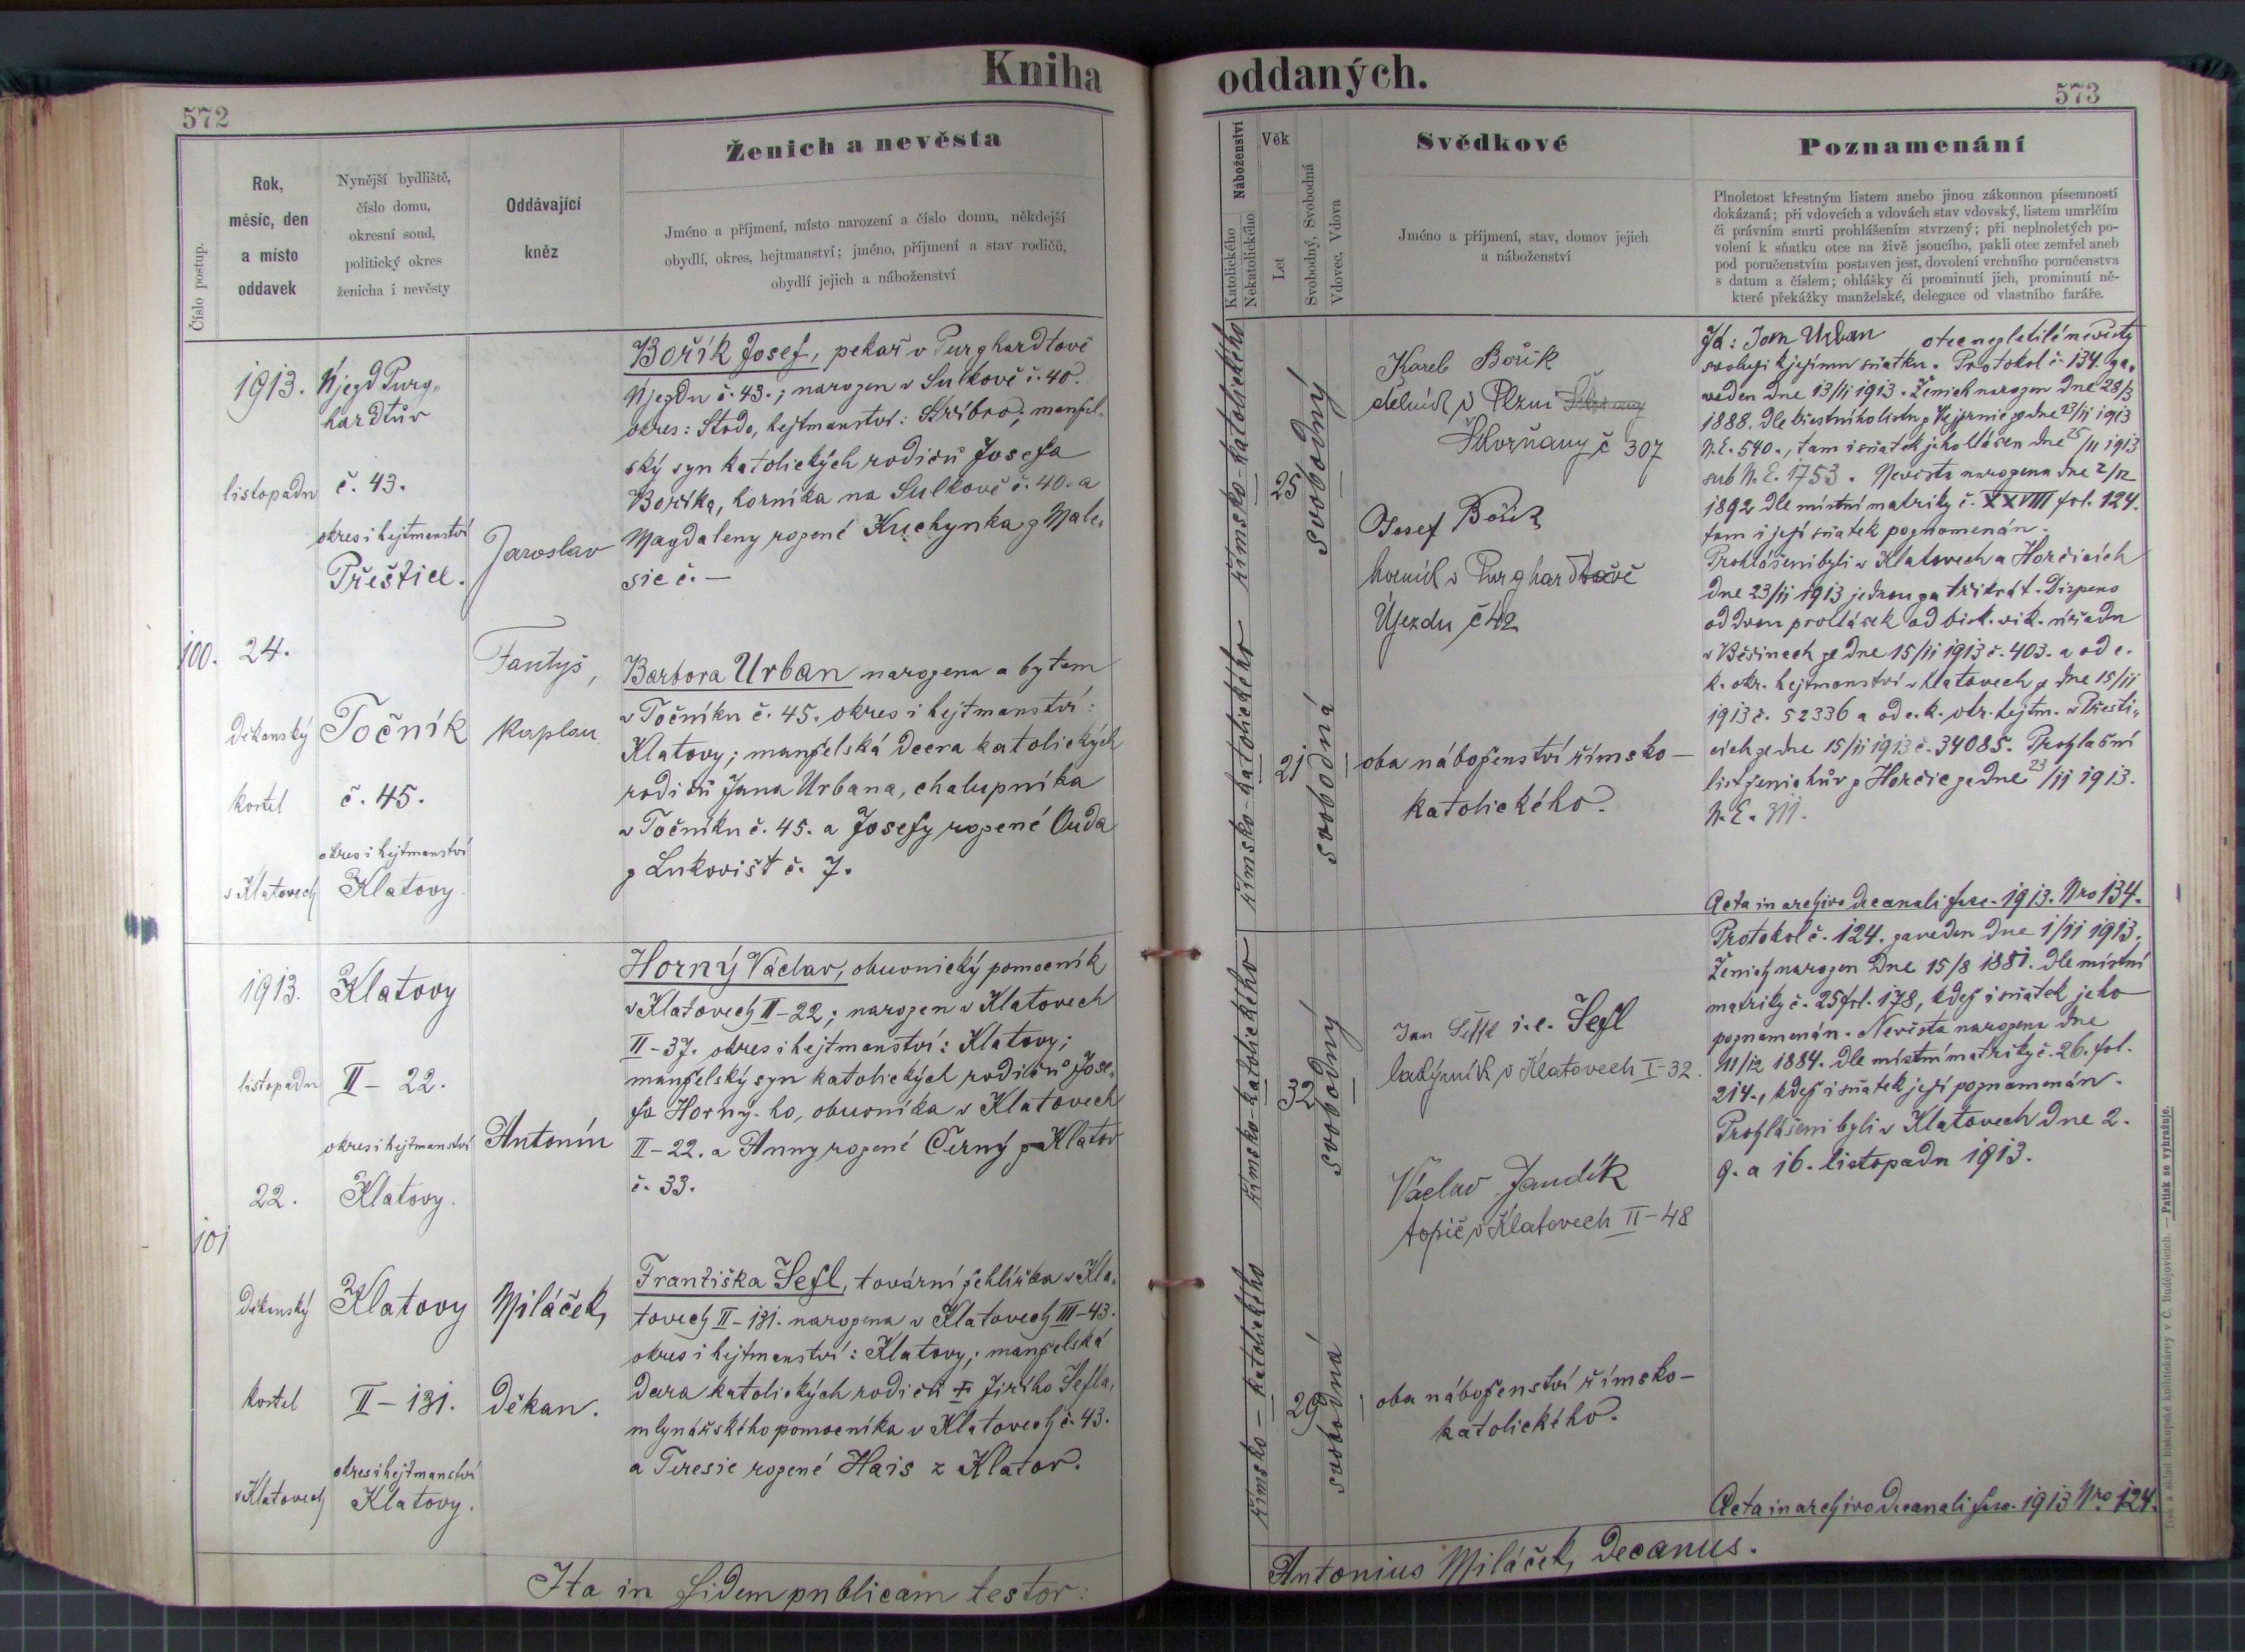 Kniha oddaných.
572
573
Číslo postup.
Rok,
měsíc, den
a místo
oddavek
Nynější bydliště,
číslo domu,
okresní soud,
politický okres
ženicha i nevěsty
Oddávající
kněz
Ženich a nevěsta
Jméno a příjmení, místo narození a číslo domu, někdejší
obydlí, okres, hejtmanství; jméno, příjmení a stav rodičů,
obydlí jejich a náboženství
Náboženství
Katolického
Nekatolického
Věk
Let
Svobodný, Svobodná
Vdovec, Vdova
Svědkové
Jméno a příjmení, stav, domov jejich
a náboženství
Poznamenání
Plnoletost křestným listem anebo jinou zákonnou písemností
dokázaná; při vdovcích a vdovách stav vdovský, listem umrlčím
či právním smrti prohlášením stvrzený; při neplnoletých po-
volení k sňatku otce na živě jsoucího, pakli otec zemřel aneb
pod poručenstvím postaven jest, dovolení vrchního poručenstva
s datum a číslem; ohlášky či prominutí jich, prominutí ně-
které překážky manželské, delegace od vlastního faráře.
100.
1913.
listopadu
24.
děkanský
kostel
v Klatovech
Újezd Purg„
hardtův
č. 43.
okres i hejtmanství
Přeštice.
Točník
č. 45.
okres i hejtmanství
Klatovy
Jaroslav
Fantyš,
kaplan
Bořík Josef, pekař v Purghardtově
Újezdu č. 43.; narozen v Sulkově č. 40.
okres: Stodo, hejtmanství: Stříbro; manžel„
ský syn katolických rodičů Josefa
Boříka, horníka na Sulkově č. 40. a
Magdaleny rozené Kuchynka z Male„
sic č. —
Barbora Urban narozena a bytem
v Točníku č. 45. okres i hejtmanství:
Klatovy; manželská dcera katolických
rodičů Jana Urbana, chalupníka
v Točníku č. 45. a Josefy rozené Ouda
z Lukovišt č. 7.
římsko-katolického
25
svobodný
římsko-katolického
21
svobodná
Karel Bořík
dělník v Plzni
Skvrňany č 307
Josef Bořík
horník v Purghardtově
Újezdu č 42
oba náboženství římsko-
katolického.
Já: Jan Urban otec nezletilé nevěsty
svoluji k jejímu sňatku. Protokol č. 134. za„
veden dne 13/11 1913. Ženich narozen dne 28/3
1888. dle křestního listu z Vejprnic ze dne 23/11 1913
N.E. 540., tam i sňatek jeho hlášen dne 25/11 1913
sub N.E. 1753. Nevěsta narozena dne 2/12
1892 dle místní matriky č. XXVIII fol. 124.
tam i její sňatek poznamenán.
Prohlášeni byli v Klatovech a Horčicích
dne 23/11 1913 jednou za třikrát. Dispens
od dvou prohlásek od bisk. vik. úřadu
v Běšinech ze dne 15/11 1913 č. 403. a od c.
k. okr. hejtmanství v Klatovech z dne 15/11
1913 č. 52336 a od c.k. okr. hejtm. v Přešti„
cích ze dne 15/11 1913 č. 34085. Prohlašní
list ženichův z Horčic ze dne 23/11 1913.
N.E. 311.
Acta in archivo decanali fasc. 1913. Nro 134.
101
1913.
listopadu
22.
děkanský
kostel
v Klatovech
Klatovy
II – 22.
okres i hejtmanství
Klatovy.
Klatovy
II – 131.
okres i hejtmanství
Klatovy.
Antonín
Miláček,
děkan.
Horný Václav, obuvnický pomocník
v Klatovech II–22; narozen v Klatovech
II–37. okres i hejtmanství: Klatovy;
manželský syn katolických rodičů Jose„
fa Horny-ho, obuvníka v Klatovech
II–22. a Anny rozené Černý z Klatov
č. 33.
Františka Šefl, tovární žehlířka v Kla„
tovech II–131. narozena v Klatovech III–43.
okres i hejtmanství: Klatovy; manželská
dcera katolických rodičů † Jiřího Šefla,
mlynářského pomocníka v Klatovech č. 43.
a Terezie rozené Hais z Klatov.
římsko-katolického
32
svobodný
římsko-katolického
29
svobodná
Jan Šeffl i.e. Šefl
lakýrník v Klatovech I–32.
Václav Jandík
topič v Klatovech II–48
oba náboženství římsko-
katolického.
Protokol č. 124. zaveden dne 1/11 1913.
Ženich narozen dne 15/8 1881. dle místní
matriky č. 25 fol. 178, kdež i sňatek jeho
poznamenán. Nevěsta narozena dne
11/12 1884. dle místní matriky č. 26. fol.
214., kdež i sňatek její poznamenán.
Prohlášeni byli v Klatovech dne 2.
9. a 16. listopadu 1913.
Acta in archivo decanali fasc. 1913 Nro 124.
Ita in fidem publicam testor:
Antonius Miláček, decanus.
Tisk a sklad biskupské knihtiskárny v Č. Budějovicích. — Patisk se vyhražuje.